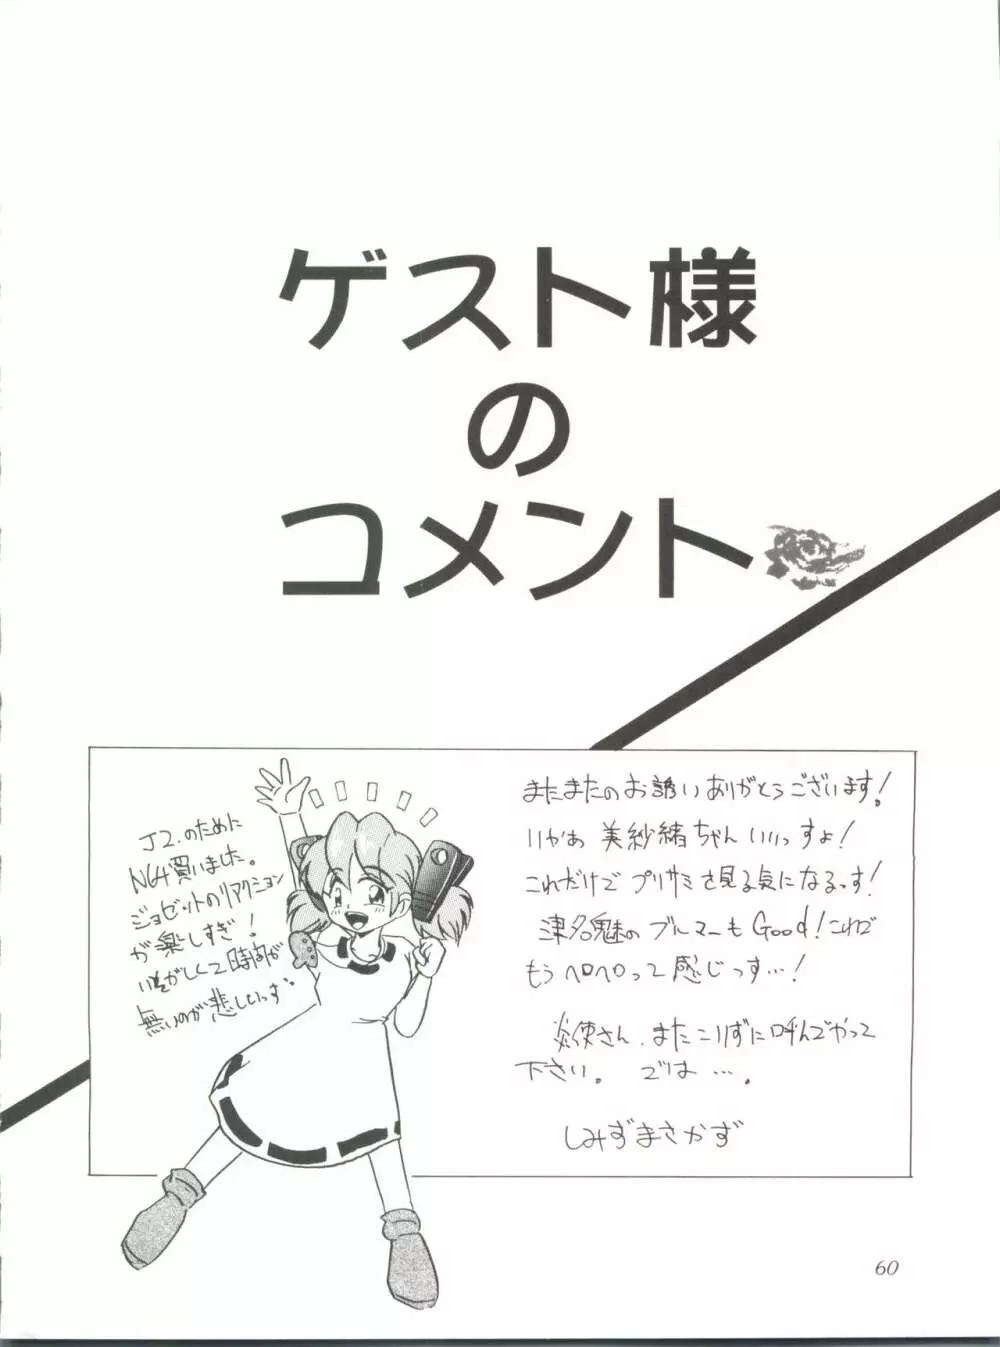 ゲスト様
の
コメント
J2.のために
N64買いました。
ジョゼットのリアクション
が楽しすぎ!
いそがしくて時間が
無いのが悲しいっす。
またまたのお誘いありがとうございます!
いやあ 美紗緒ちゃん いいっすよ!
これだけで プリサミを見る気になるっす!
津名魅の ブルマーも Good!これで
もう ヘロヘロって感じっす…!
炎使さん、またこりずに呼んでやって
下さい。 では…。
しみずまさかず
60